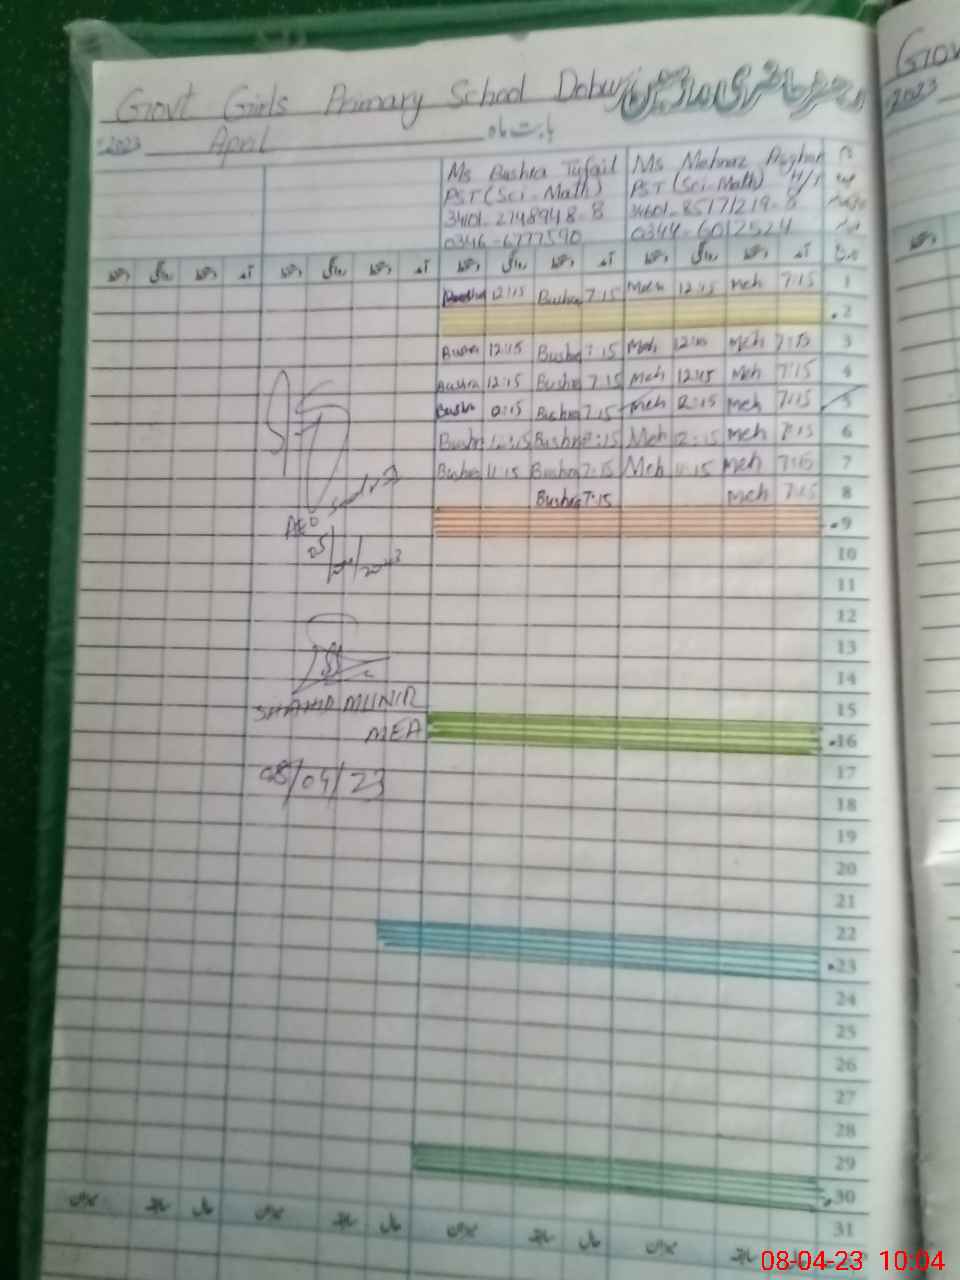 Govt Girls Primary School Dobur رجسٹر حاضری ملازمین
2023 April بابت ماہ
Ms Bushra Tufail Ms Mehnaz Asghar
PST (Sci-Math) PST (Sci-Math) H/T
34101-2748948-8 34601-8517219-8
0346-6777590 0344-6012524
دستخط روانگی دستخط آمد دستخط روانگی دستخط آمد دستخط روانگی دستخط آمد دستخط روانگی دستخط آمد تاریخ
Bushra 12:15 Bushra 7:15 Meh 12:15 Meh 7:15 1
2
Bushra 12:15 Bushra 7:15 Meh 12:15 Meh 7:15 3
Bushra 12:15 Bushra 7:15 Meh 12:15 Meh 7:15 4
Bushra 12:15 Bushra 7:15 Meh 12:15 Meh 7:15 5
Bushra 12:15 Bushra 7:15 Meh 12:15 Meh 7:15 6
Bushra 11:15 Bushra 7:15 Meh 11:15 Meh 7:15 7
Bushra 7:15 Meh 7:15 8
9
AEO
05/04/2023
10
11
12
13
14
SHAHID MUNIR 15
MEA 16
08/04/23 17
18
19
20
21
22
23
24
25
26
27
28
29
30
31
08-04-23 10:04
Govt
2023
دستخط